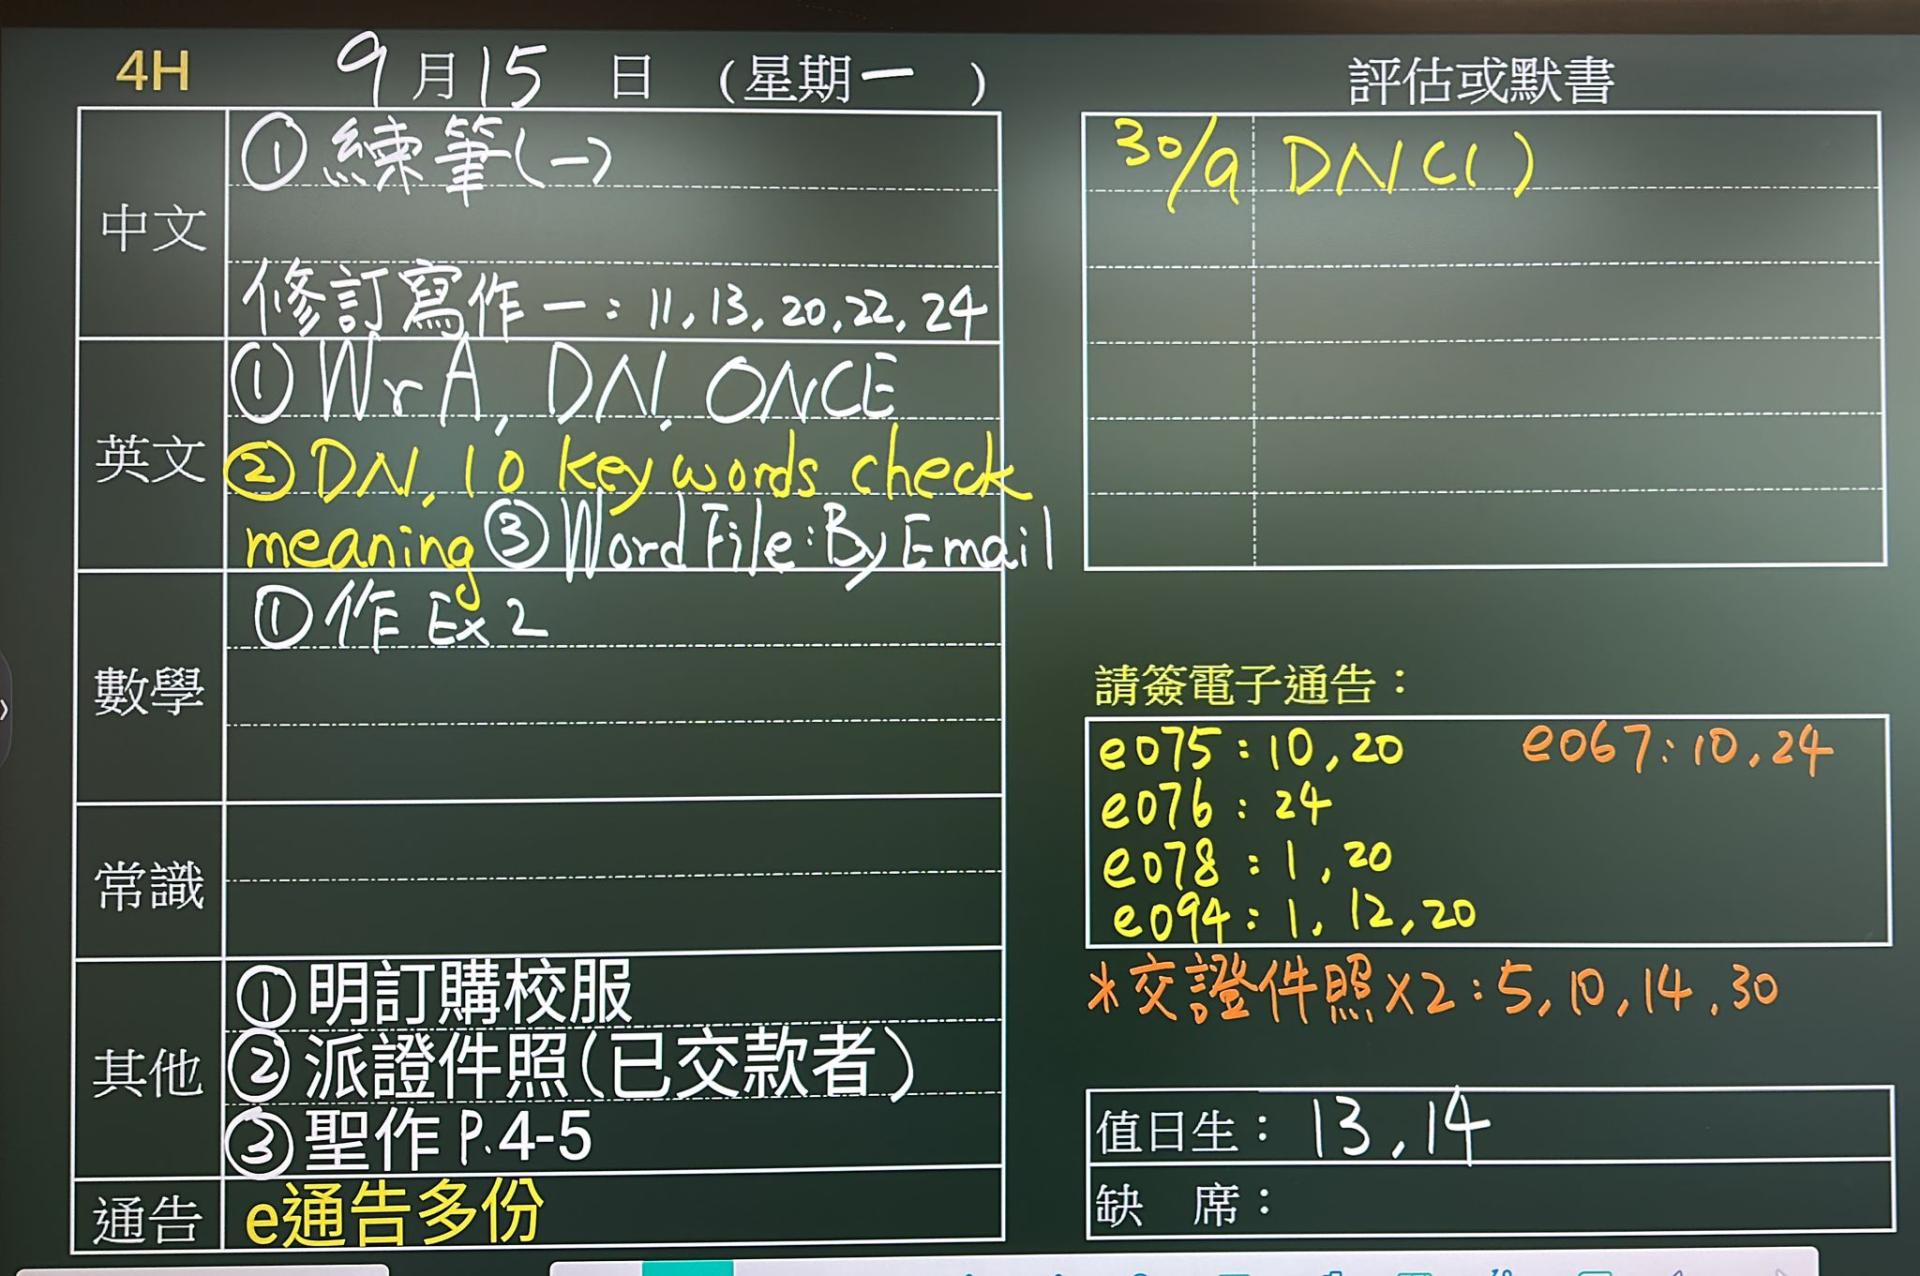 4H 9月15日 (星期一)
中文
①練筆(一)
修訂寫作一:11,13,20,22,24
英文
①WrA, DN, ONCE
②DN, 10 key words check
meaning ③Word File:By Email
數學
①作 Ex 2
常識
其他
①明訂購校服
②派證件照(已交款者)
③聖作 P.4-5
通告
e通告多份
評估或默書
30/9 DN(1)
請簽電子通告:
e075:10,20 e067:10,24
e076:24
e078:1,20
e094:1,12,20
*交證件照x2:5,10,14,30
值日生:13,14
缺 席: